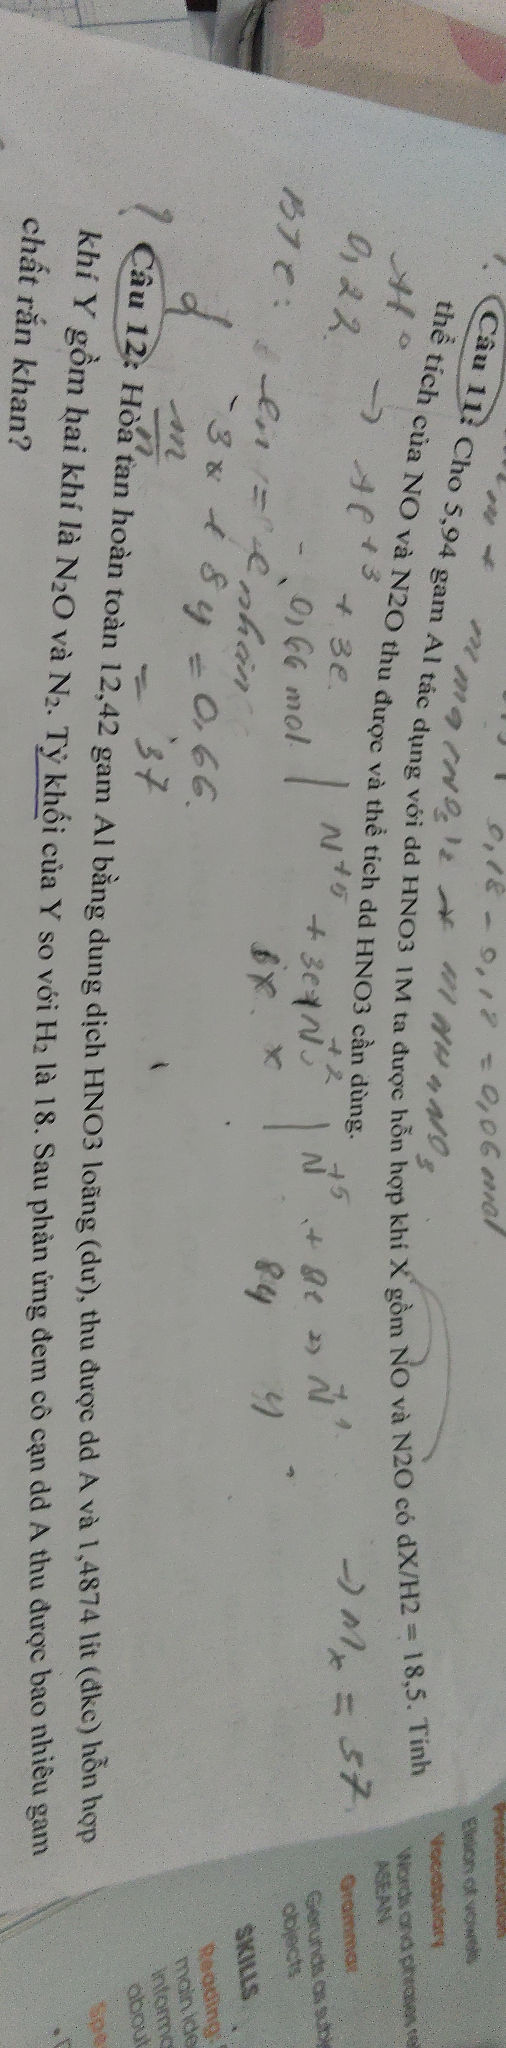 0,18 - 0,12 = 0,06 mol
Câu 11: Cho 5,94 gam Al tác dụng với dd HNO3 1M ta được hỗn hợp khí X gồm NO và N2O có dX/H2 = 18,5. Tính
thể tích của NO và N2O thu được và thể tích dd HNO3 cần dùng.
Al⁰ → Al+3 + 3e. | N+5 + 3e → N+2 | N+5 + 8e → N+1 → Mx = 37.
0,22 0,66 mol 3x. x 8y y
BTe: = e nhận
3x + 8y = 0,66.
m/n = 37
? Câu 12: Hòa tan hoàn toàn 12,42 gam Al bằng dung dịch HNO3 loãng (dư), thu được dd A và 1,4874 lít (đkc) hỗn hợp
khí Y gồm hai khí là N₂O và N₂. Tỷ khối của Y so với H₂ là 18. Sau phản ứng đem cô cạn dd A thu được bao nhiêu gam
chất rắn khan?
Elision of vowels
Vocabulary
Words and phrases
ASEAN
Grammar
Gerunds as
objects
SKILLS
Reading:
main
about